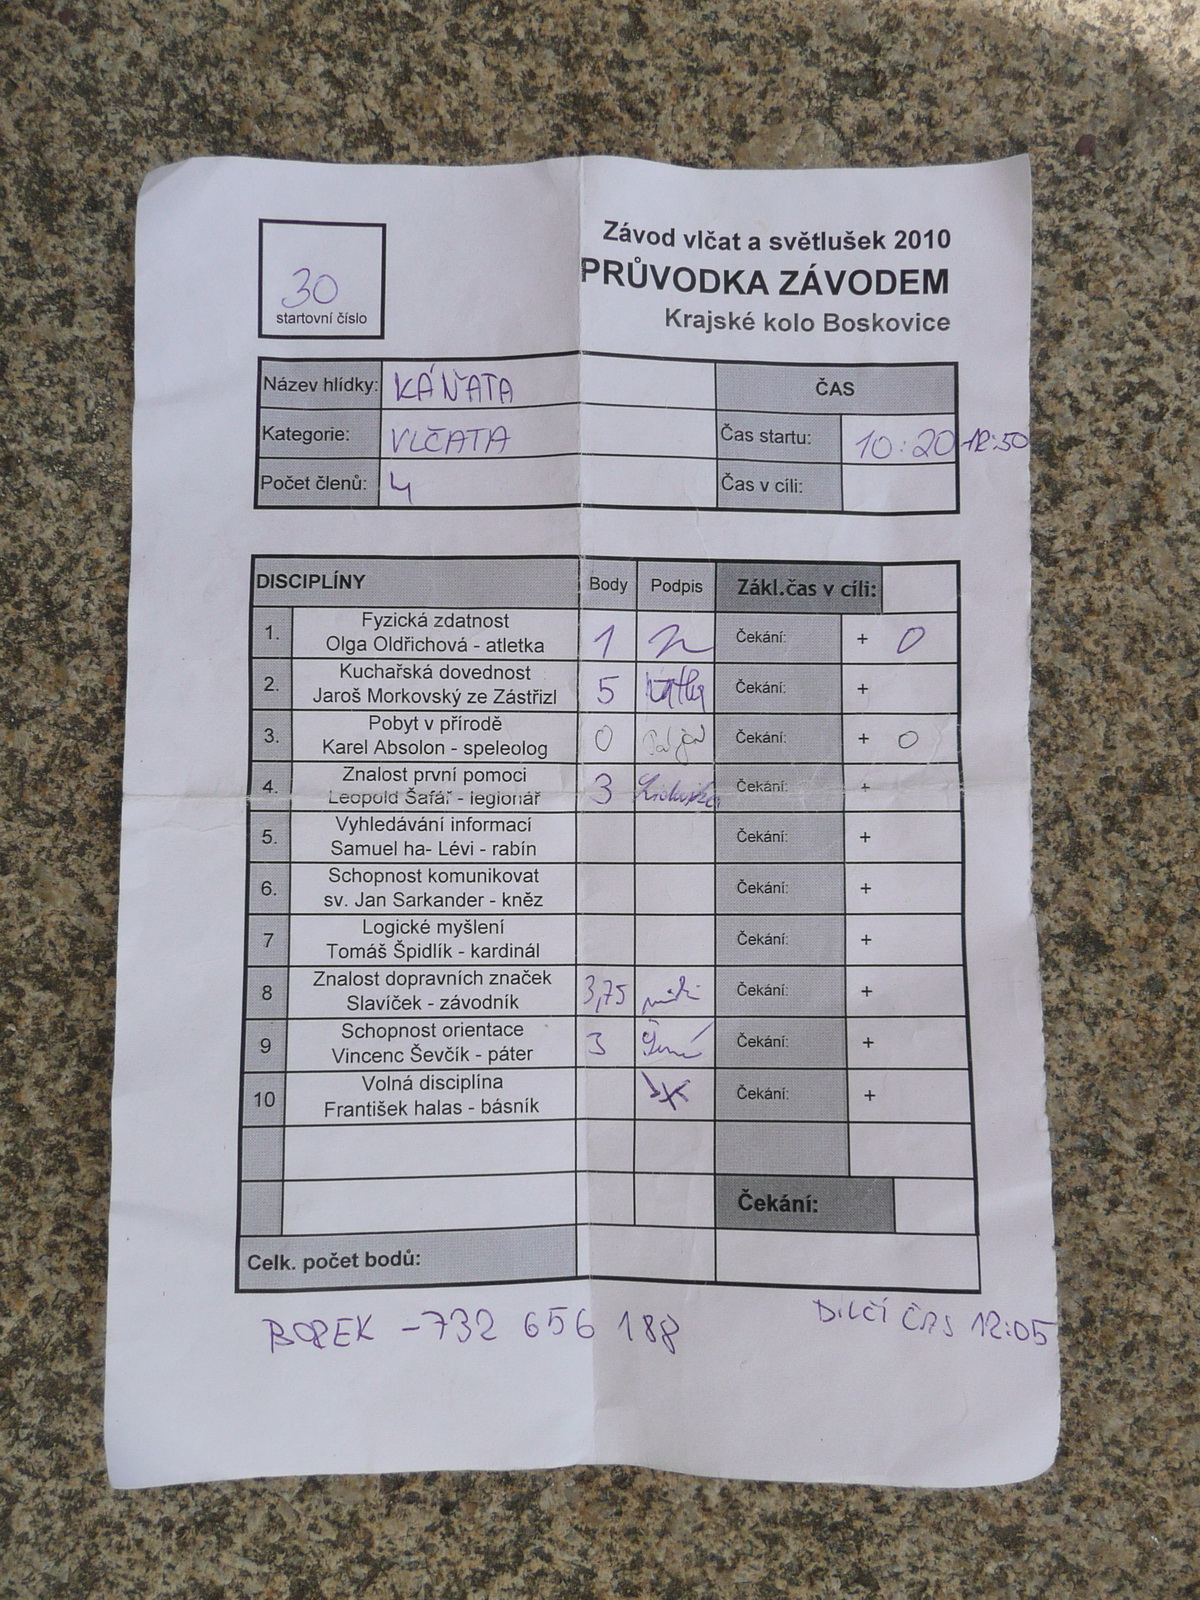 30
startovní číslo
Závod vlčat a světlušek 2010
PRŮVODKA ZÁVODEM
Krajské kolo Boskovice
Název hlídky: KÁŇATA ČAS
Kategorie: VLČATA Čas startu: 10:20 12:50
Počet členů: 4 Čas v cíli:
DISCIPLÍNY Body Podpis Zákl.čas v cíli:
1. Fyzická zdatnost
Olga Oldřichová - atletka 1 Čekání: + 0
2. Kuchařská dovednost
Jaroš Morkovský ze Zástřizl 5 Čekání: +
3. Pobyt v přírodě
Karel Absolon - speleolog 0 Čekání: + 0
4. Znalost první pomoci
Leopold Šafář - legionář 3 Čekání: +
5. Vyhledávání informací
Samuel ha- Lévi - rabín Čekání: +
6. Schopnost komunikovat
sv. Jan Sarkander - kněz Čekání: +
7 Logické myšlení
Tomáš Špidlík - kardinál Čekání: +
8 Znalost dopravních značek
Slavíček - závodník 3,75 Čekání: +
9 Schopnost orientace
Vincenc Ševčík - páter 3 Čekání: +
10 Volná disciplína
František halas - básník Čekání: +
Čekání:
Celk. počet bodů:
BOREK - 732 656 188
DÍLČÍ ČAS 12:05